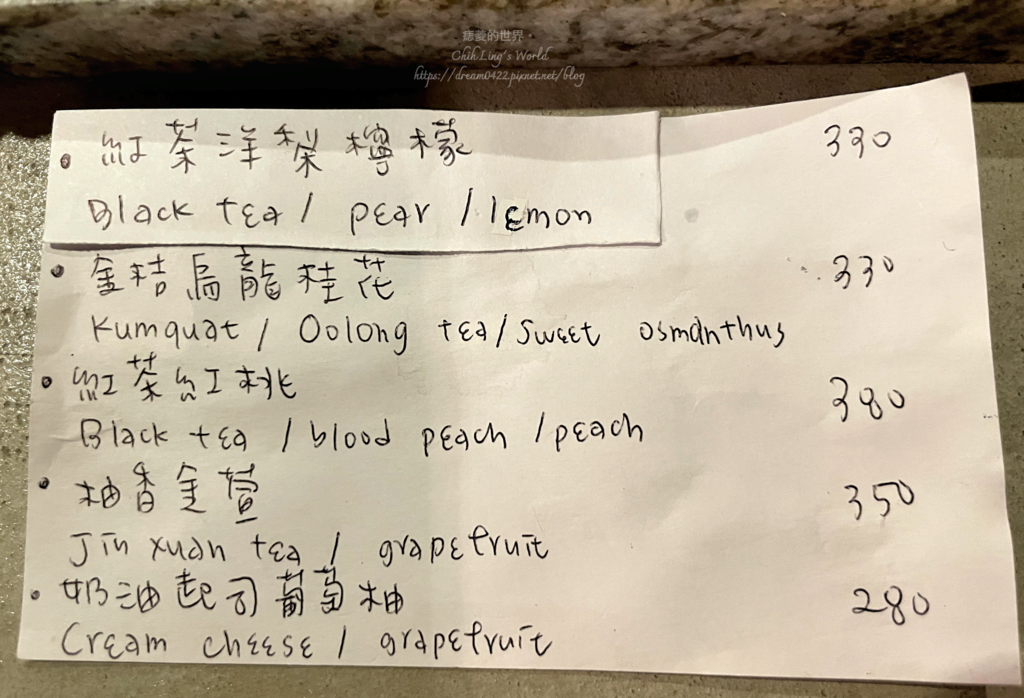 痞菱的世界。
ChihLing's World
https://dream0422.pixnet.net/blog
• 紅茶洋梨檸檬 330
Black tea / pear / lemon
• 金桔烏龍桂花 330
Kumquat / Oolong tea / sweet osmanthus
• 紅茶紅桃 380
Black tea / blood peach / peach
• 柚香金萱 350
Jin xuan tea / grapefruit
• 奶油起司葡萄柚 280
Cream cheese / grapefruit